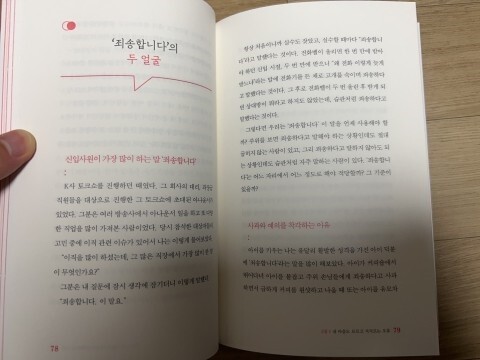 '죄송합니다'의
두 얼굴
신입사원이 가장 많이 하는 말 '죄송합니다'
:
K사 토크쇼를 진행하던 때였다. 그 회사의 대리, 과장급
직원들을 대상으로 진행한 그 토크쇼에 초대된 아나운서가
있었다. 그분은 여러 방송사에서 아나운서 일을 하고
한 직업을 많이 가져본 사람이었다. 당시 참석한 대상자들의
고민 중에 이직 관련 이슈가 있어서 나는 이렇게 물어보았다.
"이직을 많이 하셨는데, 그 많은 직장에서 가장 많이 한 말
이 무엇인가요?"
그분은 내 질문에 잠시 생각에 잠기더니 이렇게 답했다.
"죄송합니다. 이 말요."
78
항상 처음이니까 실수도 잦았고, 실수할 때마다 "죄송합니
다"라고 말했다는 것이다. 전화벨이 울리면 한 번 만에 받아
야 하던 신입 시절, 두 번 만에 받으니 "왜 전화 이렇게 늦게
받느냐"라는 말에 전화기를 든 채로 고개를 숙이며 죄송하다
고 말했다는 것이다. 그 후로 전화벨이 두 번 울린 후 받게 되
면 상대방이 뭐라고 하지도 않았는데, 습관처럼 죄송하다고
말했다는 것이다.
그렇다면 우리는 '죄송합니다' 이 말을 언제 사용해야 할
까? 주위를 보면 죄송하다고 말해야 하는 상황인데도 절대
굽히지 않는 사람이 있고, 그리 죄송하다고 말하지 않아도 되
는 상황인데도 습관처럼 자주 말하는 사람이 있다. '죄송합니
다'는 어느 자리에서 어느 정도로 해야 적당할까? 그 기준이
있을까?
사과의 예의를 착각하는 이유
:
아이를 키우는 나는 유달리 활발한 성격을 가진 아이 덕분
에 '죄송합니다'라는 말을 많이 해보았다. 아이가 커피숍에서
뛰어다녀 아이를 붙들고 주위 손님들에게 죄송하다고 사과
하면서 급하게 자리를 환장하고 나올 때 또는 아이를 유모차
79